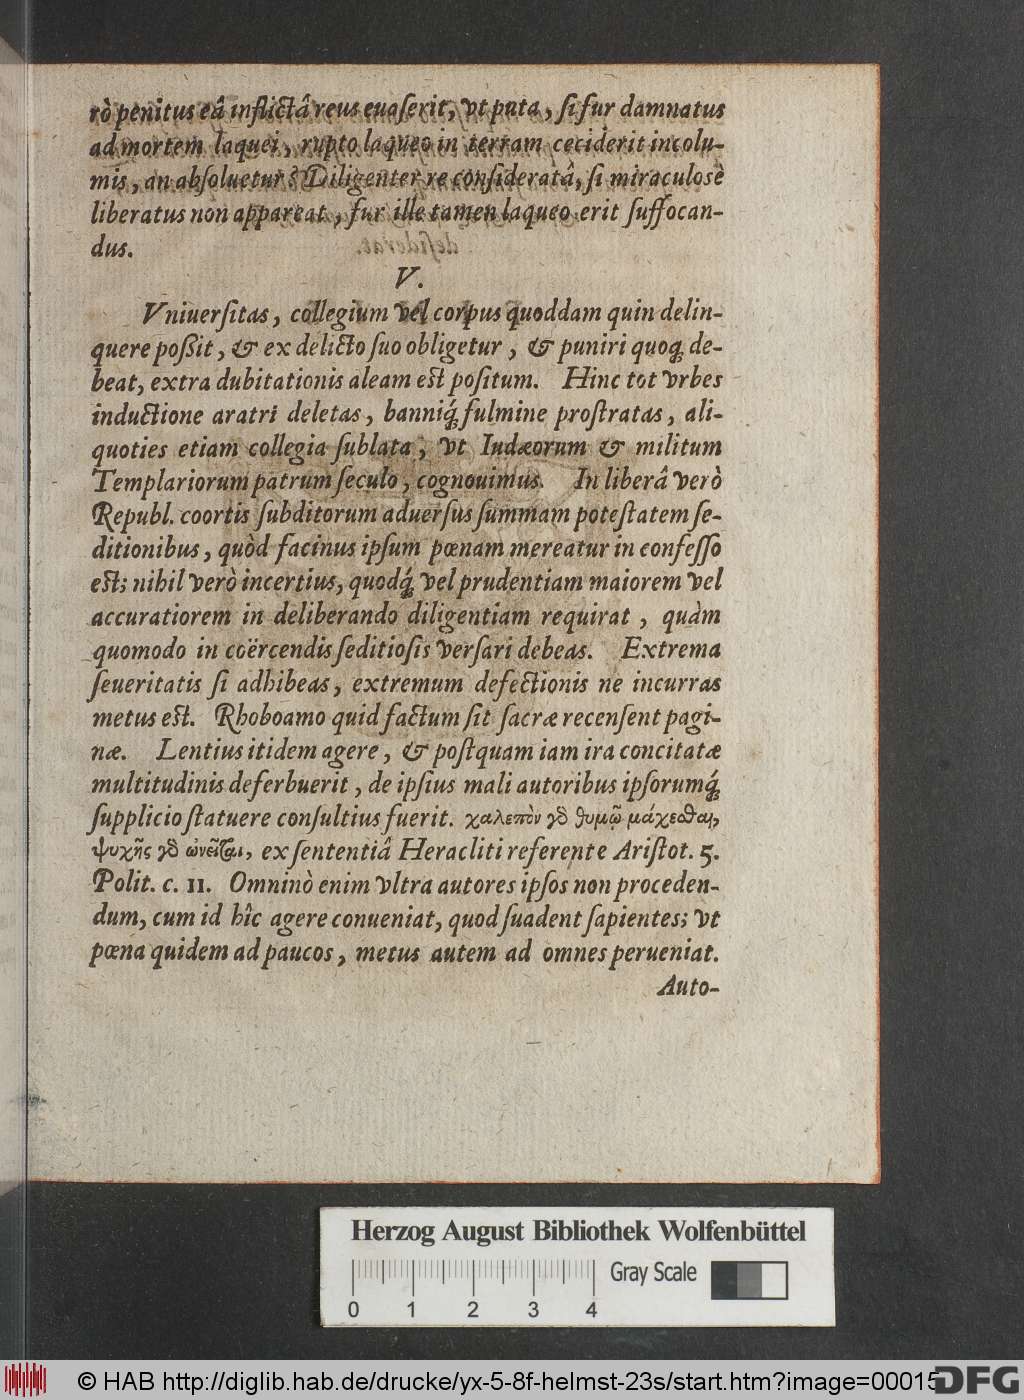 rò penitus eâ inflictâ reus euaſerit, vt puta, ſi fur damnatus
ad mortem laquei, rupto laqueo in terram ceciderit incolu-
mis, an abſoluetur? Diligenter re conſideratâ, ſi miraculosè
liberatus non appareat, fur ille tamen laqueo erit ſuffocan-
dus.
V.
Vniuerſitas, collegium vel corpus quoddam quin delin-
quere poßit, & ex delicto ſuo obligetur, & puniri quoq; de-
beat, extra dubitationis aleam eſt poſitum. Hinc tot vrbes
inductione aratri deletas, banniq́; fulmine proſtratas, ali-
quoties etiam collegia ſublata, vt Iudæorum & militum
Templariorum patrum ſeculo, cognouimus. In liberâ verò
Republ. coortis ſubditorum aduerſus ſummam poteſtatem ſe-
ditionibus, quòd facinus ipſum pœnam mereatur in confeſſo
eſt; nihil verò incertius, quodq́; vel prudentiam maiorem vel
accuratiorem in deliberando diligentiam requirat, quàm
quomodo in coërcendis ſeditioſis verſari debeas. Extrema
ſeueritatis ſi adhibeas, extremum defectionis ne incurras
metus eſt. Rhoboamo quid factum ſit ſacræ recenſent pagi-
næ. Lentius itidem agere, & poſtquam iam ira concitatæ
multitudinis deferbuerit, de ipſius mali autoribus ipſorumq́;
ſupplicio ſtatuere conſultius fuerit. χαλεπὸν γὸ θυμῷ μάχεσθαι,
ψυχῆς γὸ ὠνεῖται, ex ſententiâ Heracliti referente Ariſtot. 5.
Polit. c. 11. Omninò enim vltra autores ipſos non proceden-
dum, cum id hîc agere conueniat, quod ſuadent ſapientes; vt
pœna quidem ad paucos, metus autem ad omnes perueniat.
Auto-
Herzog August Bibliothek Wolfenbüttel
Gray Scale
0 1 2 3 4
© HAB http://diglib.hab.de/drucke/yx-5-8f-helmst-23s/start.htm?image=00015
DFG